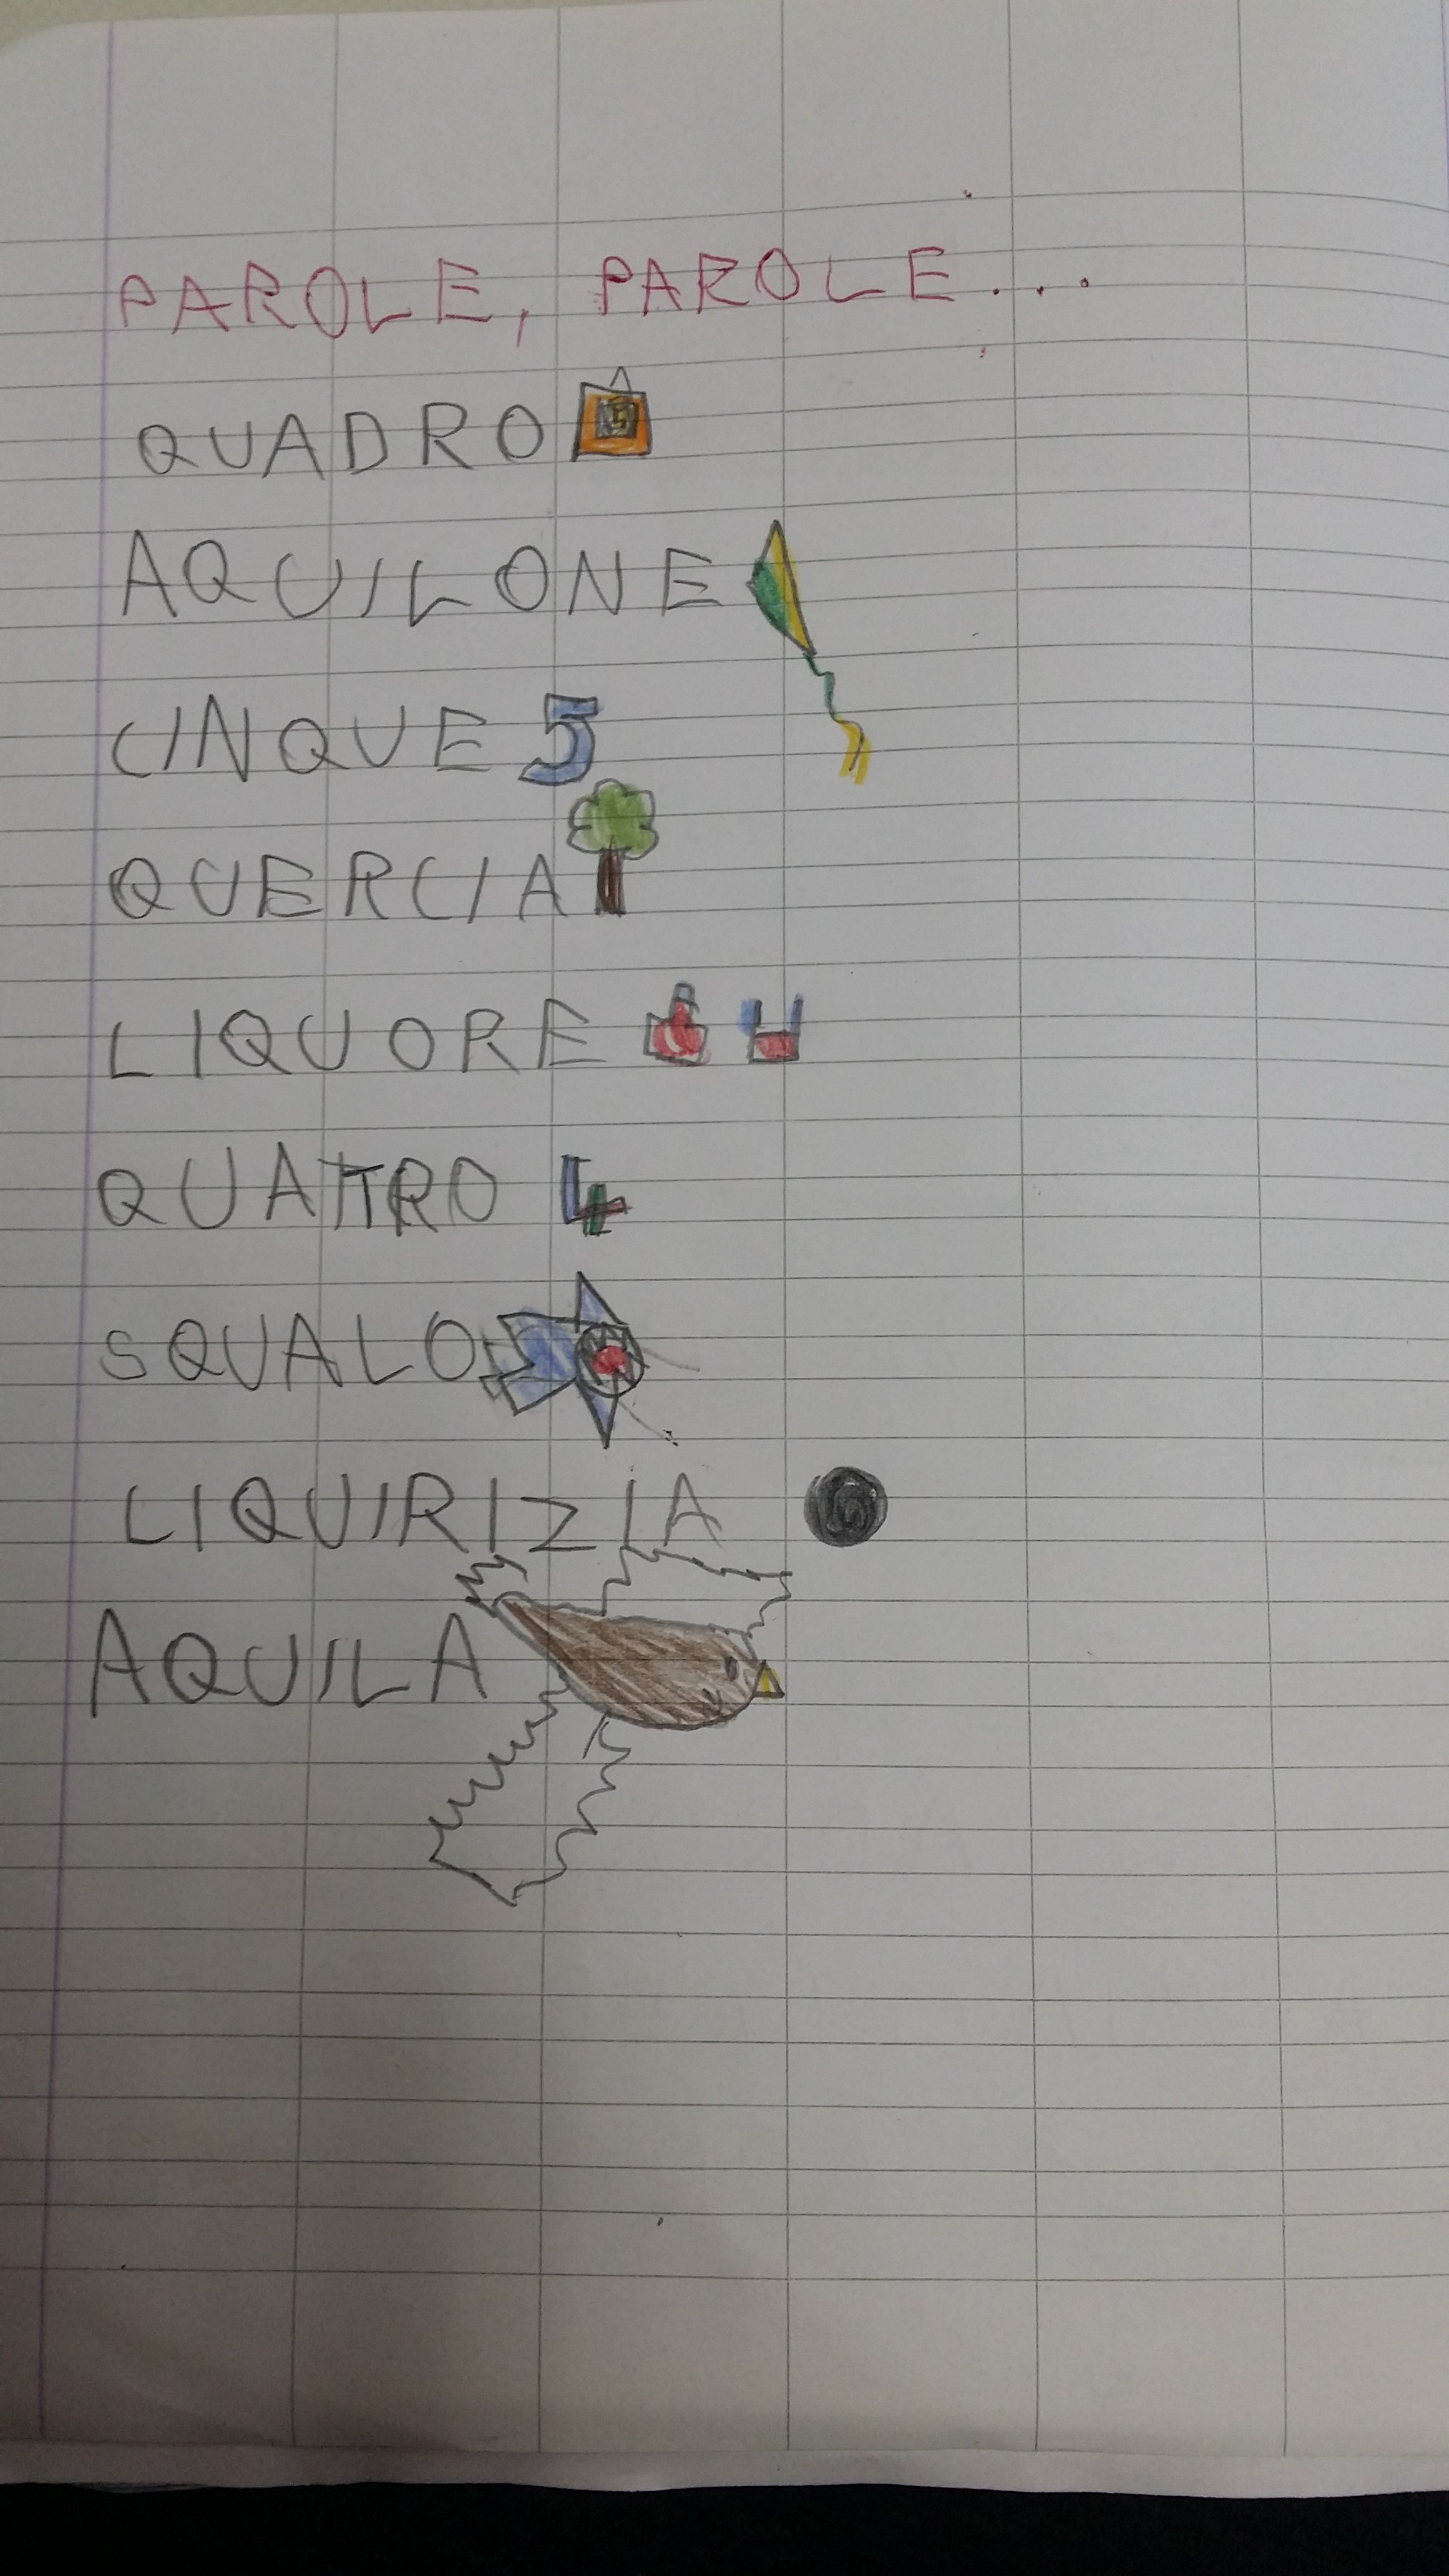 PAROLE, PAROLE...
QUADRO
AQUILONE
CINQUE 5
QUERCIA
LIQUORE
QUATTRO 4
SQUALO
LIQUIRIZIA
AQUILA